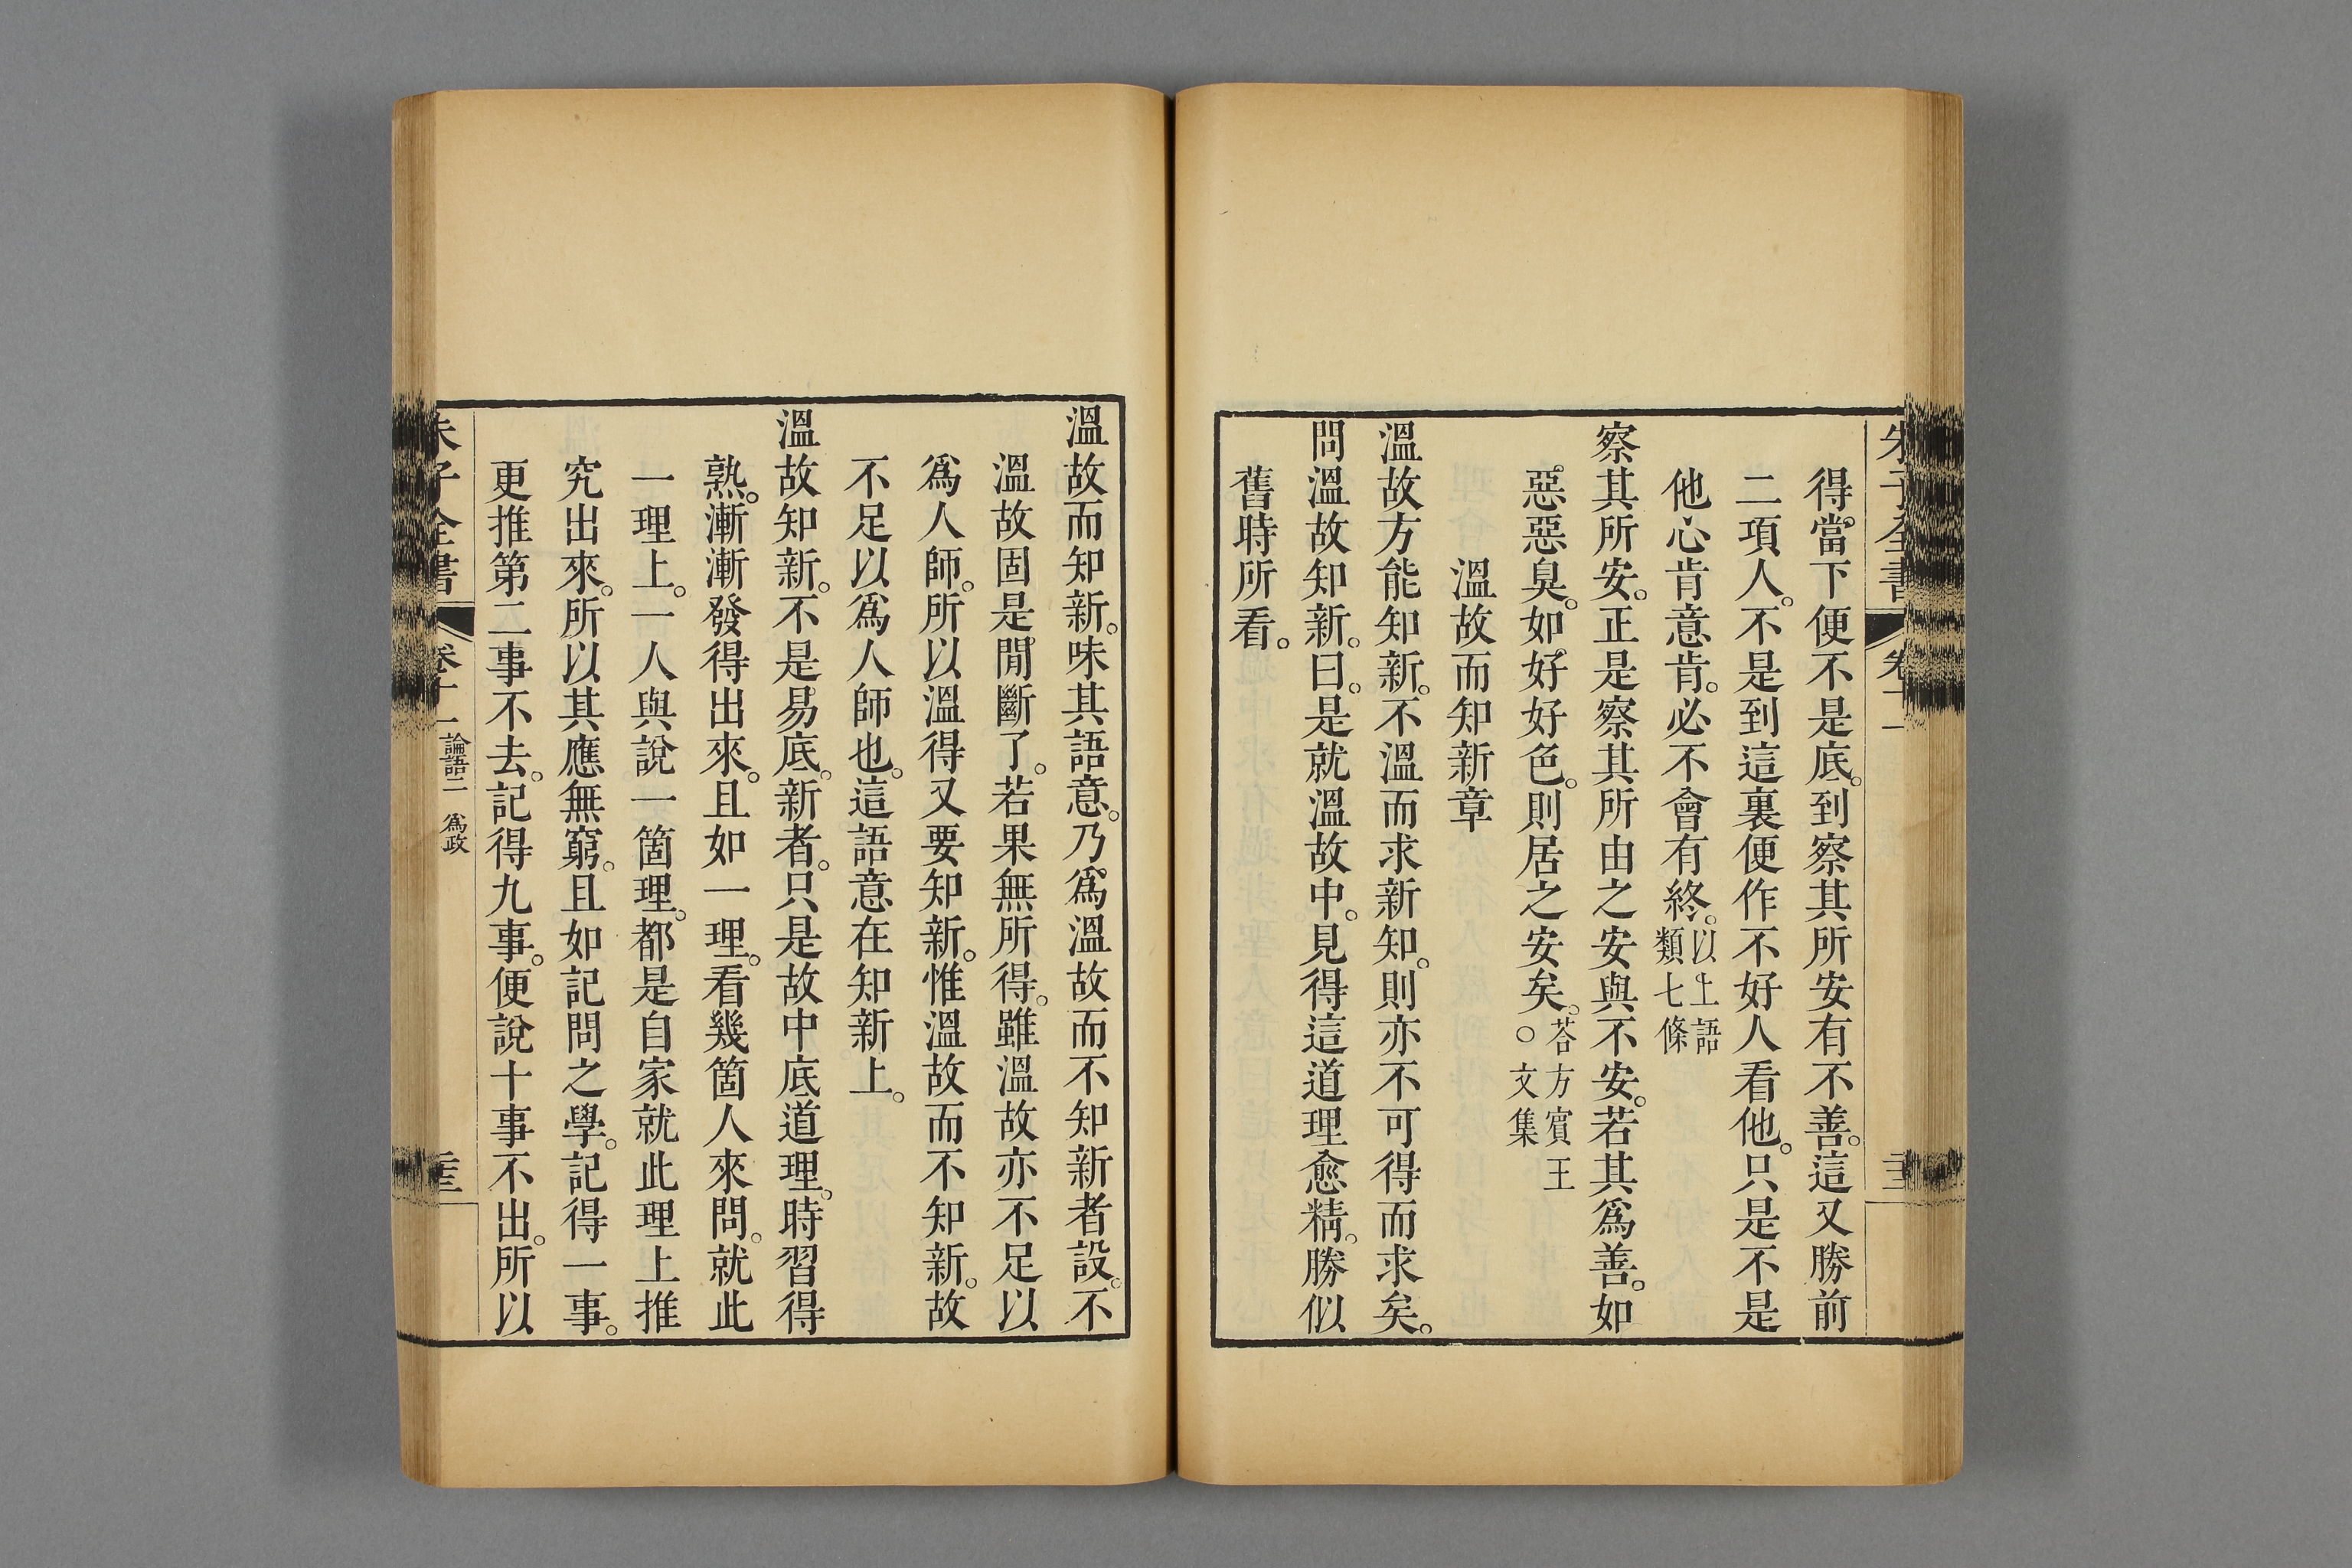 朱子全書 卷十一
得當下便不是底。到察其所安有不善。這又勝前
二項人。不是到這裏便作不好人看他。只是不是
他心肯意肯。必不會有終。以上語類七條
察其所安。正是察其所由之安與不安。若其爲善。如
惡惡臭。如好好色。則居之安矣。○答方賓王文集
溫故而知新章
溫故方能知新。不溫而求新知。則亦不可得而求矣。
問溫故知新。曰。是就溫故中。見得這道理愈精。勝似
舊時所看。
溫故而知新。味其語意。乃爲溫故而不知新者設。不
溫故固是閒斷了。若果無所得。雖溫故亦不足以
爲人師。所以溫得又要知新。惟溫故而不知新。故
不足以爲人師也。這語意在知新上。
溫故知新。不是易底。新者。只是故中底道理。時習得
熟。漸漸發得出來。且如一理。看幾箇人來問。就此
一理上。一人與說一箇理。都是自家就此理上推
究出來。所以其應無窮。且如記問之學。記得一事。
更推第二事不去。記得九事。便說十事不出。所以
朱子全書 卷十一 論語二 爲政